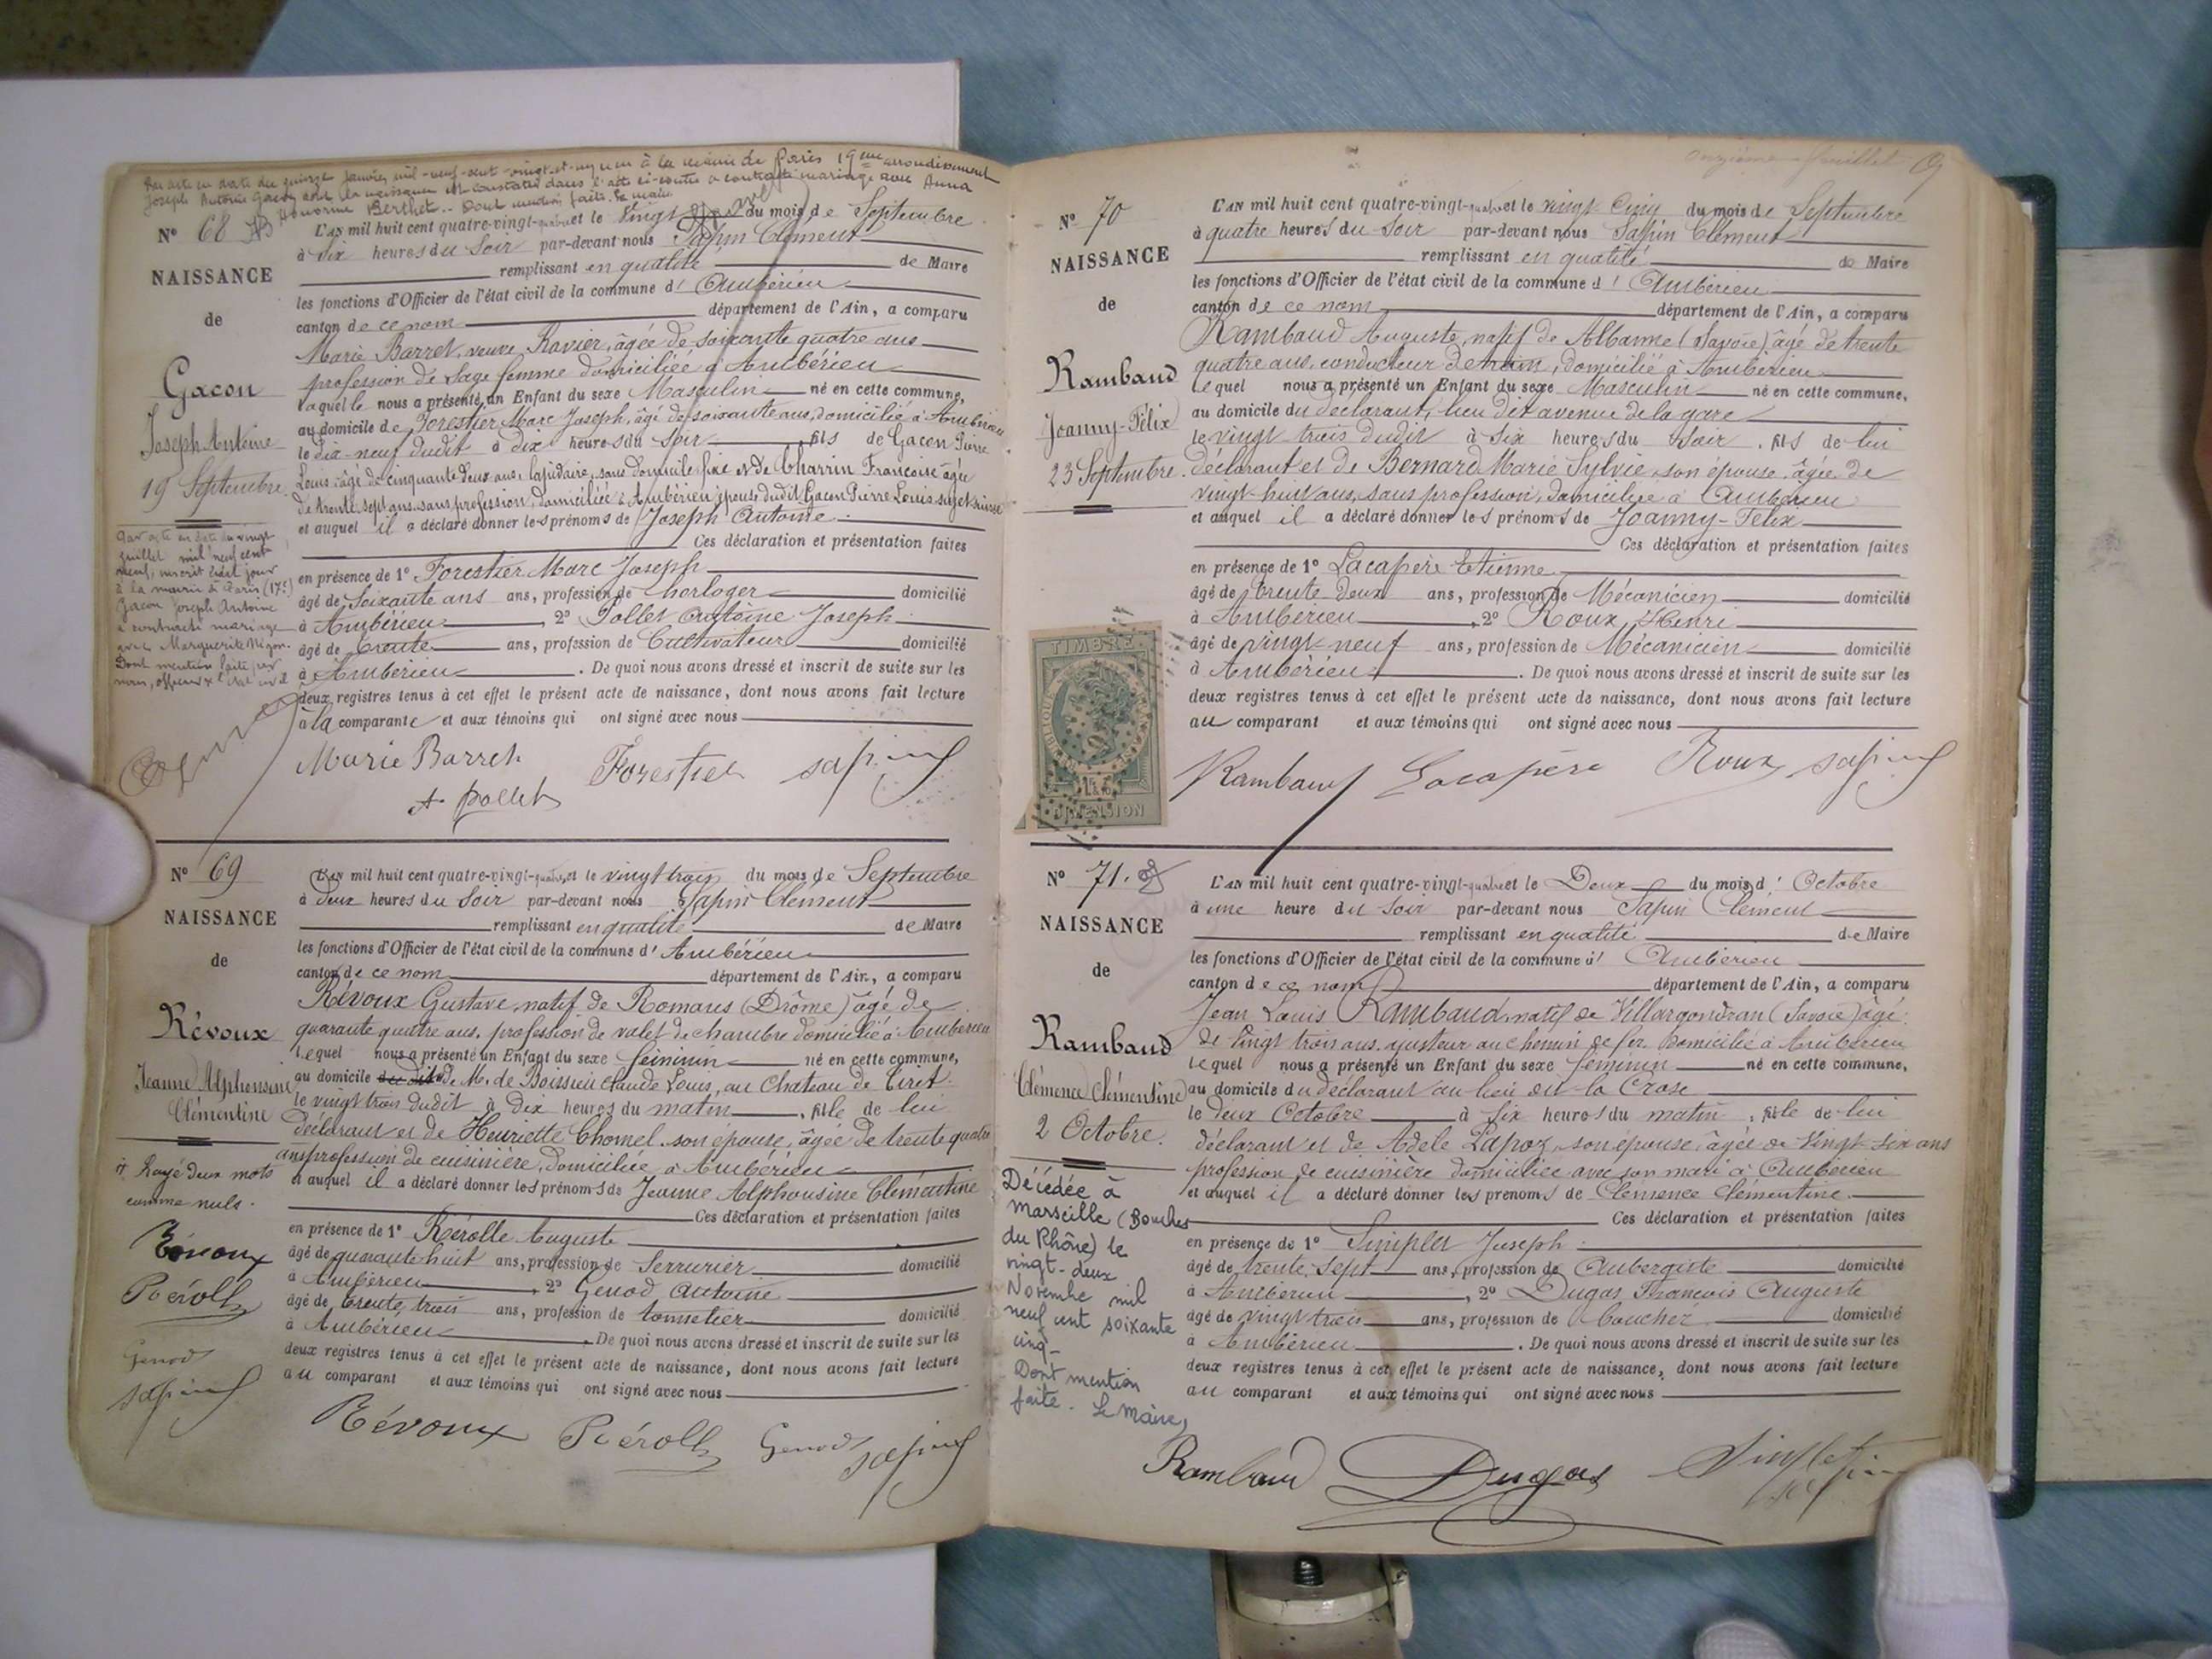 Par acte en date du quinze janvier mil-neuf-cent-vingt-et-un à la mairie de Paris 19me arrondissement
Joseph Antoine Gacon dont la naissance est constatée dans l'acte ci-contre a contracté mariage avec Anna
Berthet. - Dont mention faite. Le maire
N° 68
NAISSANCE
de
Gacon
Joseph Antoine
19 Septembre
Par acte en date du vingt
juillet mil neuf cent
neuf, inscrit ledit jour
à la mairie de Paris (17e)
Gacon Joseph Antoine
a contracté mariage
avec Marguerite
Dont mention faite par
nous, officier de l'état civil
L'AN mil huit cent quatre-vingt-quatre et le Vingt du mois de Septembre
à dix heures du Soir par-devant nous Sapin Clément
remplissant en qualité de Maire
les fonctions d'Officier de l'état civil de la commune d' Ambérieu
canton de ce nom département de l'Ain, a comparu
Marie Barret, veuve Ravier, âgée de soixante quatre ans
profession de Sage femme domiciliée à Ambérieu
laquelle nous a présenté un Enfant du sexe Masculin né en cette commune,
au domicile de Forestier Marc Joseph, âgé de soixante ans, domicilié à Ambérieu
le dix-neuf dudit à dix heures du Soir, fils de Gacon Pierre
Louis âgé de cinquante deux ans, lapidaire, sans domicile fixe et de Charrin Françoise âgée
de trente sept ans sans profession, domiciliée à Ambérieu épouse dudit Gacon Pierre Louis sujet suisse
et auquel il a déclaré donner les prénoms de Joseph Antoine
Ces déclaration et présentation faites
en présence de 1° Forestier Marc Joseph
âgé de Soixante ans ans, profession de horloger domicilié
à Ambérieu, 2° Pollet Antoine Joseph
âgé de trente ans, profession de Cultivateur domicilié
à Ambérieu. De quoi nous avons dressé et inscrit de suite sur les
deux registres tenus à cet effet le présent acte de naissance, dont nous avons fait lecture
à la comparante et aux témoins qui ont signé avec nous
Marie Barret Forestier Sapin
A. Pollet
N° 69
NAISSANCE
de
Révoux
Jeanne Alphonsine
Clémentine
Rayé deux mots
comme nuls.
Révoux
Rérolle
Genod
Sapin
L'AN mil huit cent quatre-vingt-quatre et le vingt trois du mois de Septembre
à Deux heures du Soir par-devant nous Sapin Clément
remplissant en qualité de Maire
les fonctions d'Officier de l'état civil de la commune d' Ambérieu
canton de ce nom département de l'Ain, a comparu
Révoux Gustave, natif de Romans (Drôme) âgé de
quarante quatre ans, profession de valet de chambre domicilié à Ambérieu
lequel nous a présenté un Enfant du sexe féminin né en cette commune,
au domicile de M. de Boissieu Claude Louis, au Chateau de Tiret
le vingt trois dudit à Dix heures du matin, fille de lui
déclarant et de Henriette Chomel son épouse, âgée de trente quatre
ans profession de cuisinière, domiciliée à Ambérieu
et auquel il a déclaré donner les prénoms de Jeanne Alphonsine Clémentine
Ces déclaration et présentation faites
en présence de 1° Rérolle Auguste
âgé de quarante huit ans, profession de Serrurier domicilié
à Ambérieu, 2° Genod Antoine
âgé de trente trois ans, profession de tonnelier domicilié
à Ambérieu. De quoi nous avons dressé et inscrit de suite sur les
deux registres tenus à cet effet le présent acte de naissance, dont nous avons fait lecture
au comparant et aux témoins qui ont signé avec nous
Révoux Rérolle Genod Sapin
onzième feuillet
N° 70
NAISSANCE
de
Rambaud
Joanny-Félix
23 Septembre.
L'AN mil huit cent quatre-vingt-quatre et le vingt Cinq du mois de Septembre
à quatre heures du Soir par-devant nous Sapin Clément
remplissant en qualité de Maire
les fonctions d'Officier de l'état civil de la commune d' Ambérieu
canton de ce nom département de l'Ain, a comparu
Rambaud Auguste, natif de Albanne (Savoie) âgé de trente
quatre ans, conducteur de train, domicilié à Ambérieu
lequel nous a présenté un Enfant du sexe Masculin né en cette commune,
au domicile du déclarant, lieu dit avenue de la gare
le vingt trois dudit à Six heures du Soir, fils de lui
déclarant et de Bernard Marie Sylvie, son épouse, âgée de
vingt-huit ans, sans profession, domiciliée à Ambérieu
et auquel il a déclaré donner les prénoms de Joanny-Félix
Ces déclaration et présentation faites
en présence de 1° Lacapère Etienne
âgé de trente Deux ans, profession de Mécanicien domicilié
à Ambérieu, 2° Roux Henri
âgé de vingt-neuf ans, profession de Mécanicien domicilié
à Ambérieu. De quoi nous avons dressé et inscrit de suite sur les
deux registres tenus à cet effet le présent acte de naissance, dont nous avons fait lecture
au comparant et aux témoins qui ont signé avec nous
TIMBRE
DIMENSION
Rambaud Lacapère Roux Sapin
N° 71.
NAISSANCE
de
Rambaud
Clémence Clémentine
2 Octobre.
Décédée à
Marseille (Bouches
du Rhône) le
vingt-deux
Novembre mil
neuf cent soixante
cinq-
Dont mention
faite. Le Maire,
L'AN mil huit cent quatre-vingt-quatre et le Deux du mois d' Octobre
à une heure du Soir par-devant nous Sapin Clément
remplissant en qualité de Maire
les fonctions d'Officier de l'état civil de la commune d' Ambérieu
canton de ce nom département de l'Ain, a comparu
Jean Louis Rambaud, natif de Villargondran (Savoie) âgé
de Vingt trois ans, ajusteur au chemin de fer domicilié à Ambérieu
lequel nous a présenté un Enfant du sexe féminin né en cette commune,
au domicile du déclarant au lieu dit la Crose
le deux Octobre à Six heures du matin, fille de lui
déclarant et de Adèle Lapoz, son épouse, âgée de Vingt-six ans
profession de cuisinière domiciliée avec son mari à Ambérieu
et auquel il a déclaré donner les prénoms de Clémence Clémentine.
Ces déclaration et présentation faites
en présence de 1° Joseph
âgé de trente Sept ans, profession de Aubergiste domicilié
à Ambérieu, 2° Dugas François Auguste
âgé de vingt trois ans, profession de Boucher domicilié
à Ambérieu. De quoi nous avons dressé et inscrit de suite sur les
deux registres tenus à cet effet le présent acte de naissance, dont nous avons fait lecture
au comparant et aux témoins qui ont signé avec nous
Rambaud Dugas Sapin